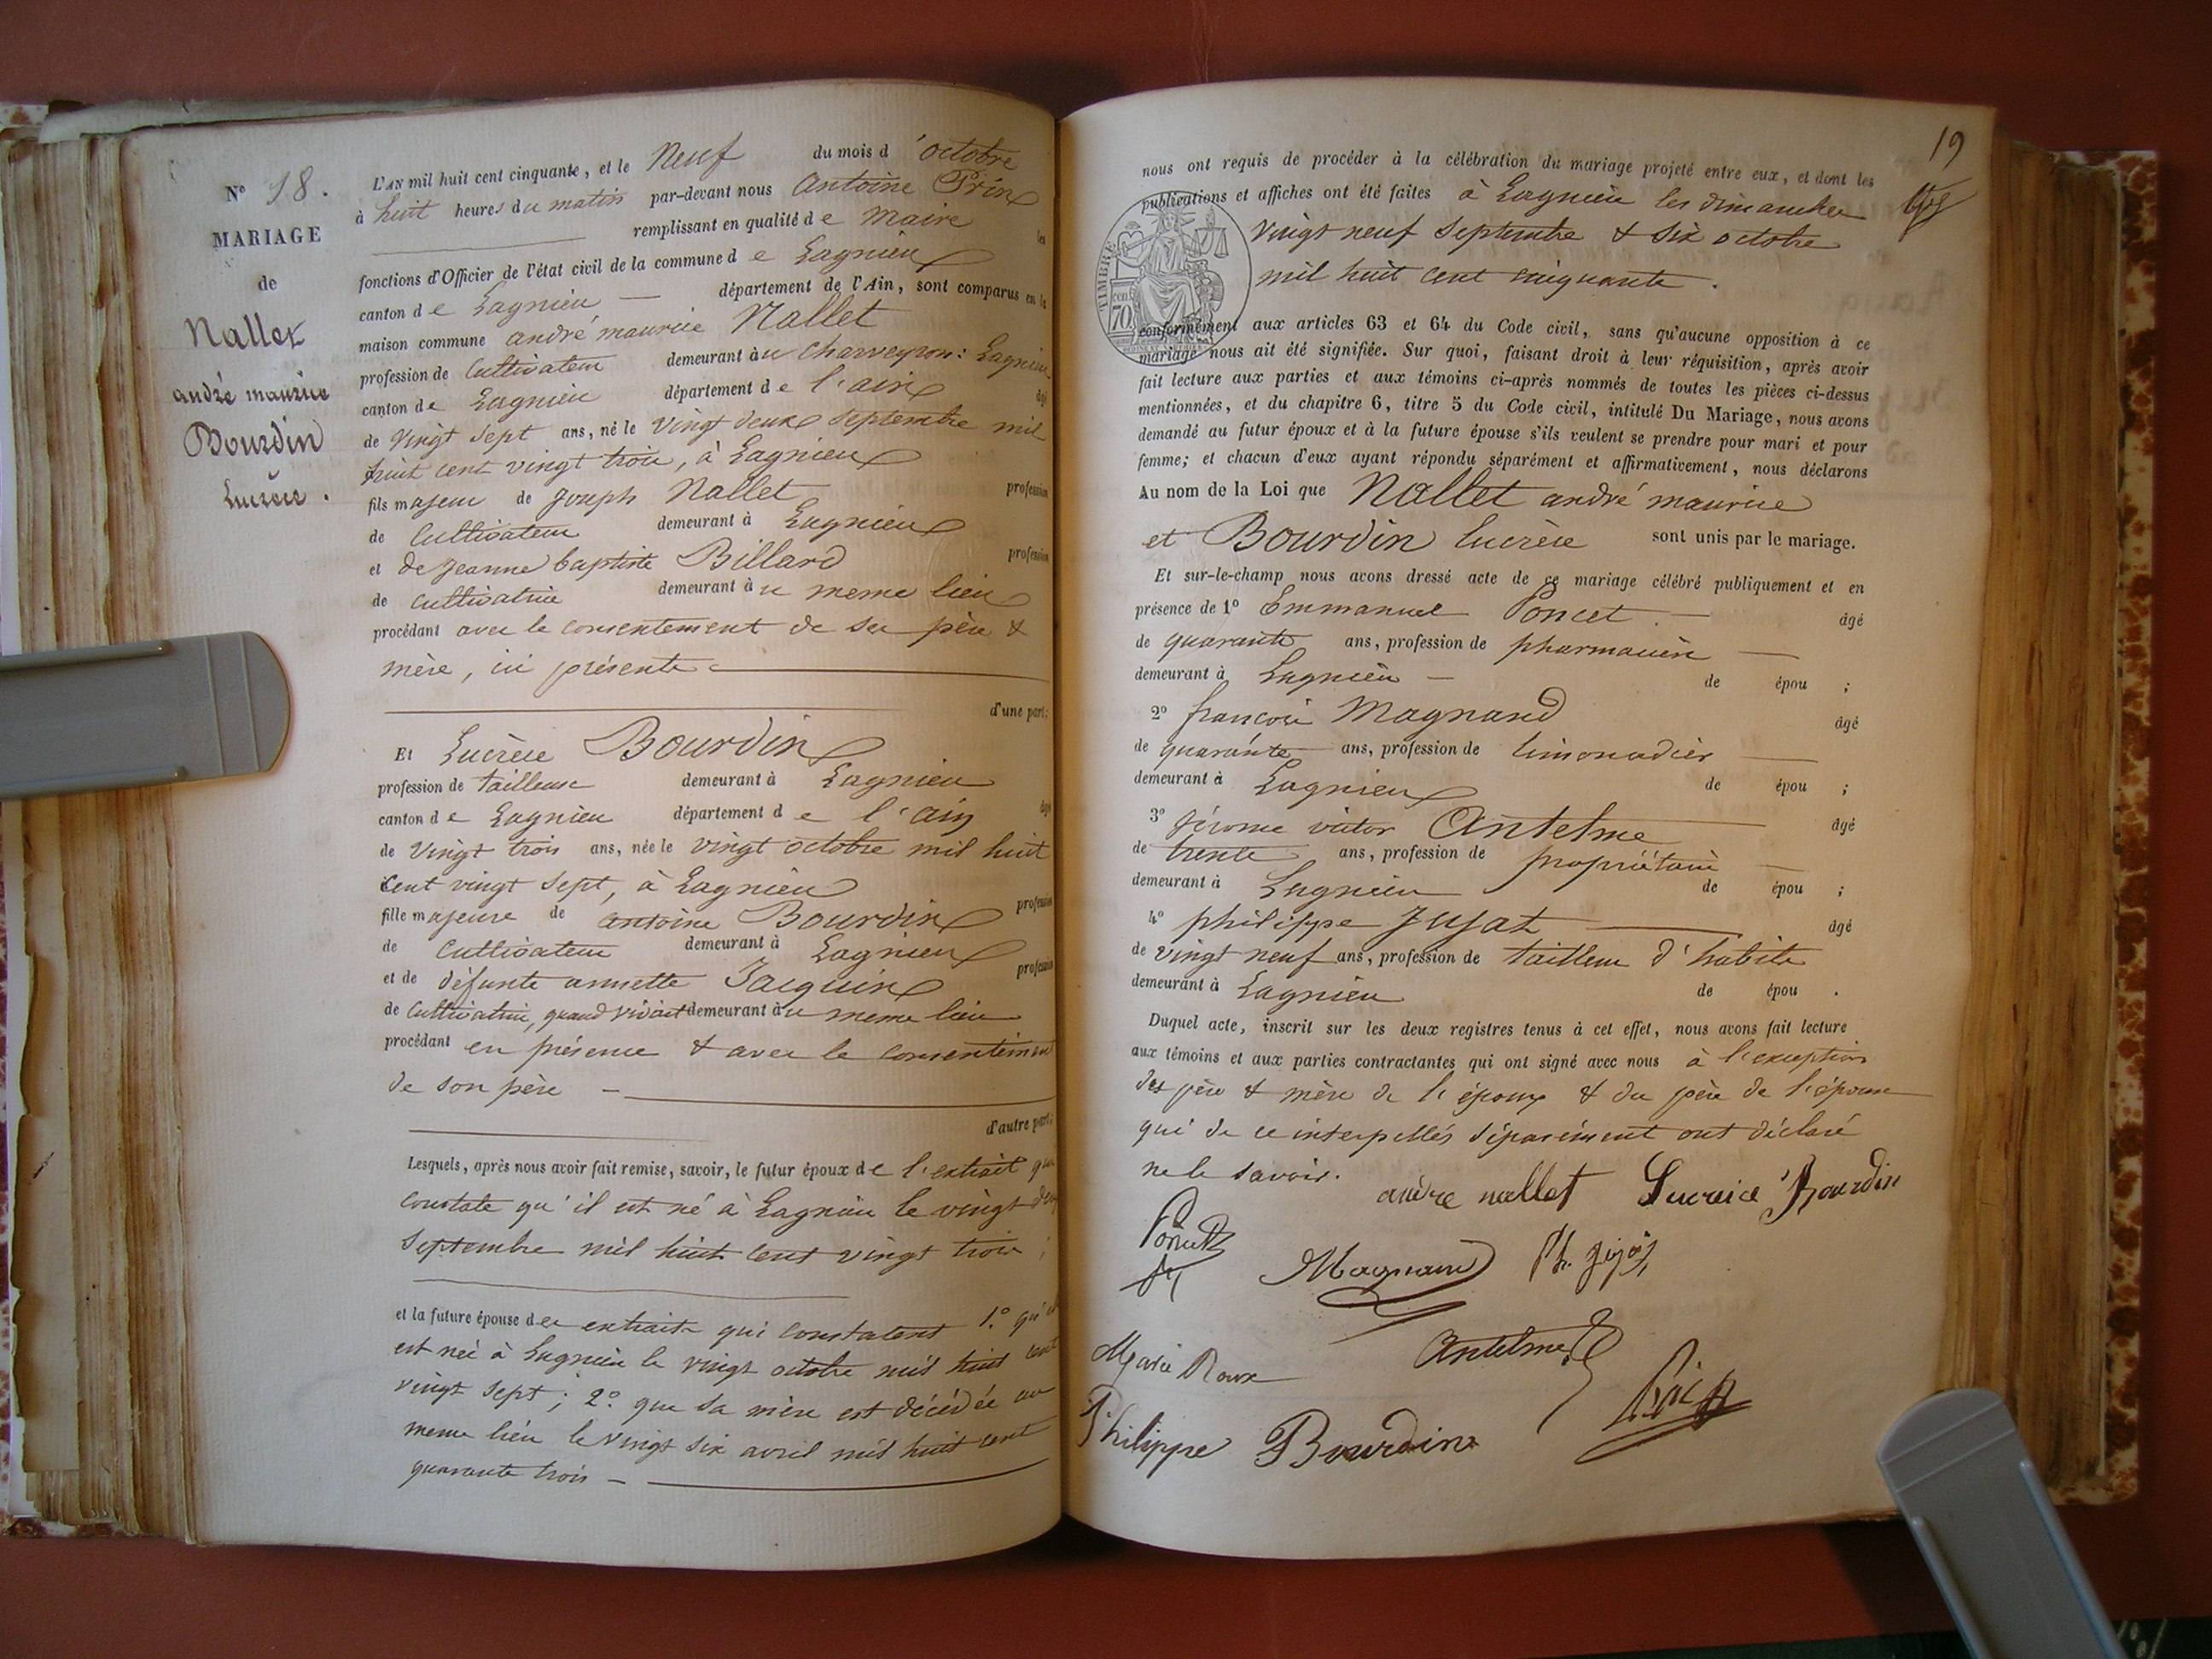 N° 18.
MARIAGE
de
Nallet
andré maurice
Bourdin
Lucrèce.
L'AN mil huit cent cinquante, et le Neuf du mois d'octobre
à huit heures du matin par-devant nous Antoine Prin
remplissant en qualité de Maire les
fonctions d'Officier de l'état civil de la commune de Lagnieu
canton de Lagnieu — département de l'Ain, sont comparus en la
maison commune andré maurice Nallet
profession de Cultivateur demeurant au Charveyron: Lagnieu
canton de Lagnieu département de l'ain âgé
de Vingt Sept ans, né le vingt deux Septembre mil
huit cent vingt trois, à Lagnieu
fils majeur de Joseph Nallet profession
de Cultivateur demeurant à Lagnieu
et de Jeanne baptiste Billard profession
de Cultivatrice demeurant au meme lieu
procédant avec le consentement de ses père &
mère, ici présents
d'une part;
Et Lucrèce Bourdin
profession de tailleuse demeurant à Lagnieu
canton de Lagnieu département de l'ain âgé
de Vingt trois ans, née le vingt octobre mil huit
Cent vingt Sept, à Lagnieu
fille majeure de antoine Bourdin profession
de Cultivateur demeurant à Lagnieu
et de défunte annette Jacquin profession
de Cultivatrice, quand vivait demeurant au meme lieu
procédant en présence & avec le consentement
de son père —
d'autre part;
Lesquels, après nous avoir fait remise, savoir, le futur époux de l'extrait qui
constate qu'il est né à Lagnieu le vingt deux
Septembre mil huit Cent vingt trois;
et la future épouse des extraits qui constatent 1.° qu'elle
est née à Lagnieu le vingt octobre mil huit cent
vingt Sept; 2.° que sa mère est décédée au
meme lieu le Vingt Six avril mil huit cent
quarante trois —
19
nous ont requis de procéder à la célébration du mariage projeté entre eux, et dont les
publications et affiches ont été faites à Lagnieu les dimanches
Vingt neuf Septembre & Six octobre
mil huit cent cinquante.
TIMBRE
70
conformément aux articles 63 et 64 du Code civil, sans qu'aucune opposition à ce
mariage nous ait été signifiée. Sur quoi, faisant droit à leur réquisition, après avoir
fait lecture aux parties et aux témoins ci-après nommés de toutes les pièces ci-dessus
mentionnées, et du chapitre 6, titre 5 du Code civil, intitulé Du Mariage, nous avons
demandé au futur époux et à la future épouse s'ils veulent se prendre pour mari et pour
femme; et chacun d'eux ayant répondu séparément et affirmativement, nous déclarons
Au nom de la Loi que Nallet andré maurice
et Bourdin Lucrèce sont unis par le mariage.
Et sur-le-champ nous avons dressé acte de ce mariage célébré publiquement et en
présence de 1° Emmanuel Poncet — âgé
de quarante ans, profession de pharmacien —
demeurant à Lagnieu — de épou ;
2° françois Magnard âgé
de quarante ans, profession de limonadier —
demeurant à Lagnieu de épou ;
3° Jérome victor Antelme âgé
de trente ans, profession de propriétaire —
demeurant à Lagnieu de épou ;
4° philippe Jujat âgé
de vingt neuf ans, profession de tailleur d'habits
demeurant à Lagnieu de épou .
Duquel acte, inscrit sur les deux registres tenus à cet effet, nous avons fait lecture
aux témoins et aux parties contractantes qui ont signé avec nous à l'exception
des père & mère de l'époux & du père de l'épouse
qui de ce interpellés séparément ont déclaré
ne le savoir.
andre nallet Lucraice Bourdin
Poncet
Magnard Ph. Jujat
Antelme
Marie Roux
Prin
Philippe Bourdin